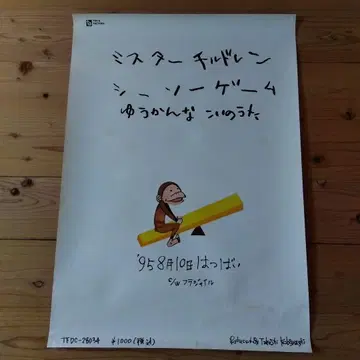 ミスター チルドレン
シーソーゲーム
ゆうかんな こいのうた
'95 8月10日 はつばい
C/W フラジャイル
TFDC-28034 ¥1000(税込)